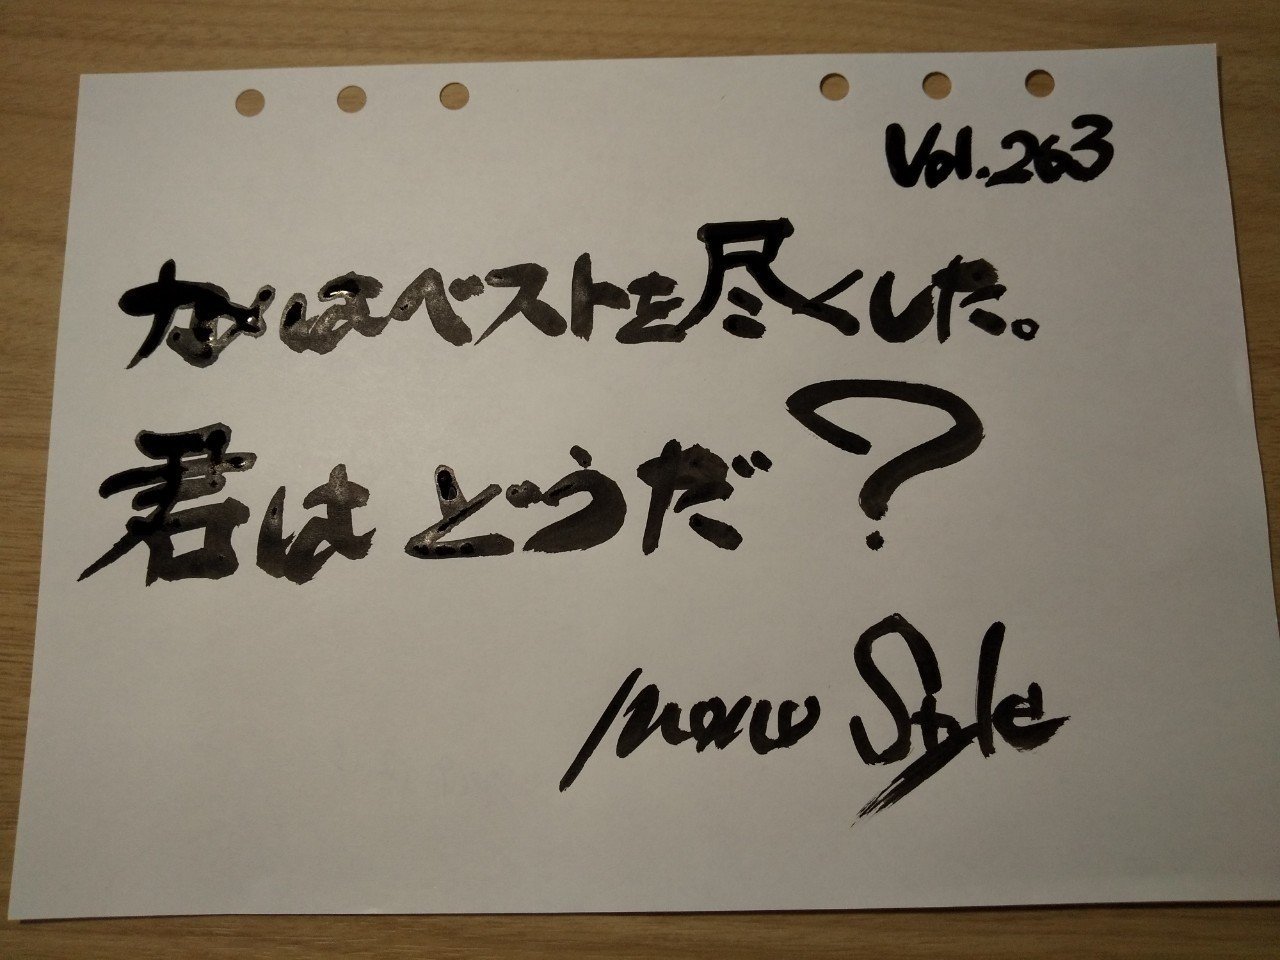 Vol.263
なはベストを尽くした。
君はどうだ?
Style